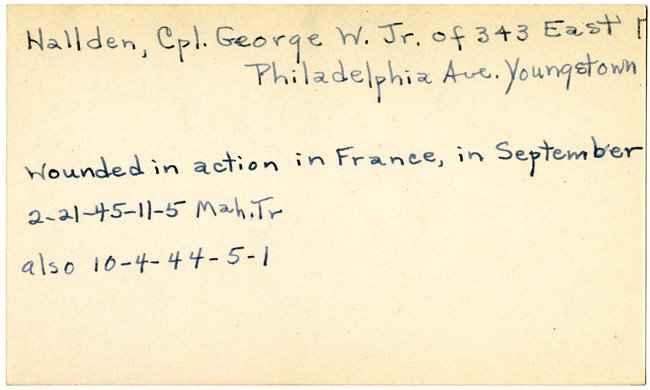 Hallden, Cpl. George W. Jr. of 343 East
Philadelphia Ave. Youngstown
Wounded in action in France, in September
2-21-45-11-5 Mah. Tr
also 10-4-44-5-1